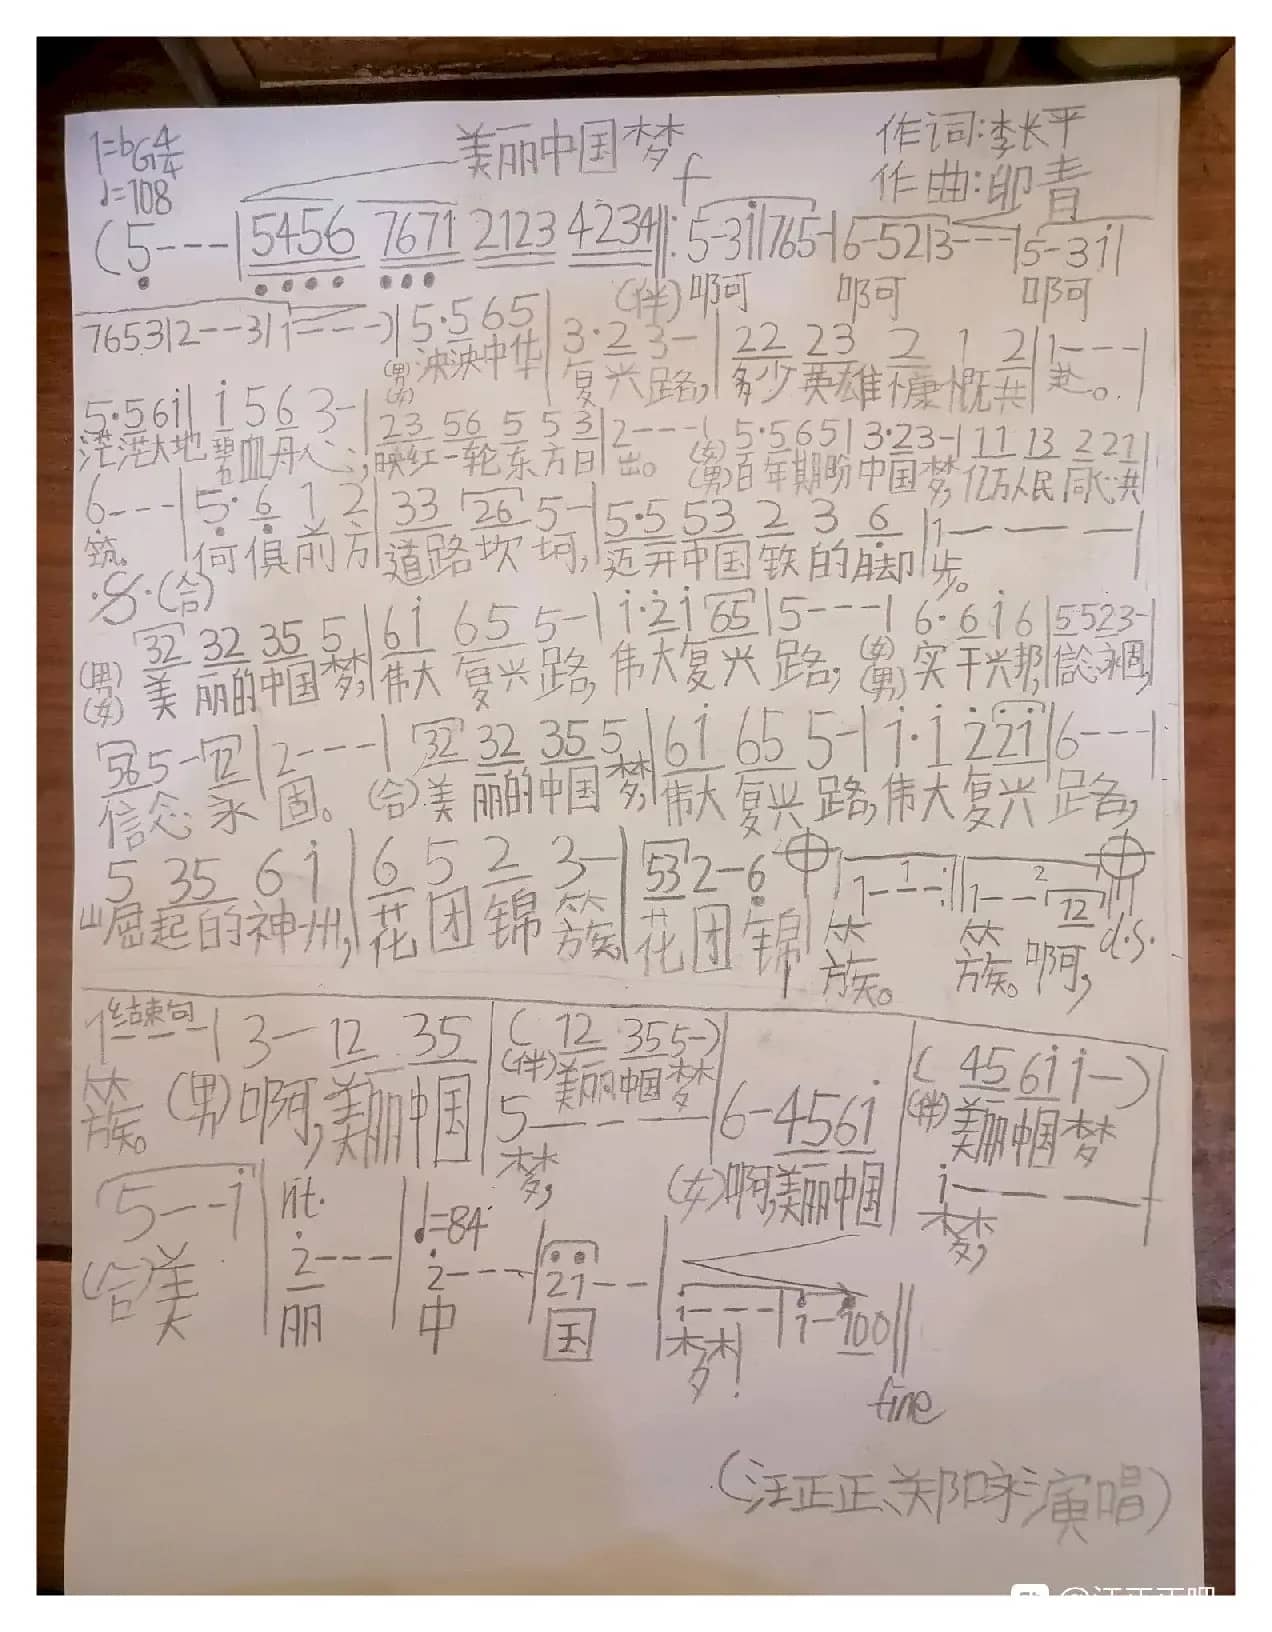 1=bG4/4 美丽中国梦 作词:李长平
♩=108 f 作曲:印青
(5---|5456 7671 2123 4234‖:5-3i|765-|6-52|3---|5-3i|
(伴)啊 啊 啊
7653|2--3|1---)|5·5 65|3·2 3-|22 23 2 1 2|1---|
(男)(女)泱泱中华复兴路,多少英雄慷慨共赴。
5·5 6i|i 5 6 3-|23 56 5 5 3|2---|5·5 65|3·2 3-|11 13 2 21|
茫茫大地碧血丹心,映红一轮东方日出。(女)(男)百年期盼中国梦,亿万人民同心共
6---|5· 6 1 2|33 26 5-|5·5 53 2 3 6|1---|
筑。何惧前方道路坎坷,迈开中国铁的脚步。
·S·(合)
32 32 35 5|6i 65 5-|i·2i 65|5---|6·6 i 6|5523-|
(男)(女)美丽的中国梦,伟大复兴路,伟大复兴路,(女)(男)实干兴邦,信念永固,
56 5-12|2---|32 32 35 5|6i 65 5-|i·i 2 2i|6---|
信念永固。(合)美丽的中国梦,伟大复兴路,伟大复兴路,
5 35 6 i|6 5 2 3-|53 2-6|1---:|1--12‖
1 2
崛起的神州,花团锦簇花团锦簇。簇。啊, d.s.
结束句
1---|3-12 35|(12 35 5-)|6-45 6i|(45 6i i-)
(伴)美丽中国梦 (伴)美丽中国梦
5--- i---
簇。(男)啊,美丽中国梦,(女)啊,美丽中国梦,
rit. ♩=84
5--i|2---|2---|2i--|i---|i-i00‖
(合)美丽中国梦!
fine
(汪正正、郑咏演唱)